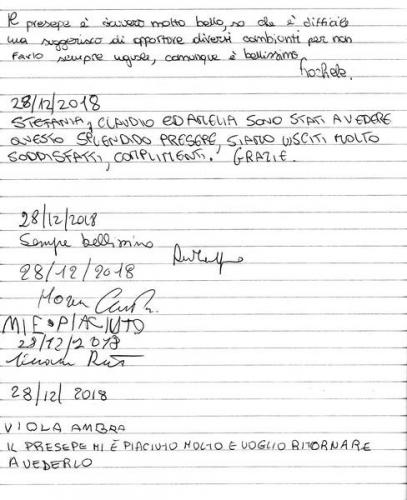 Il presepe è davvero molto bello, so che è difficile
ma suggerisco di apportare diversi cambianti per non
farlo sempre uguale, comunque è bellissimo
Rachele.
28/12/2018
STEFANIA, CLAUDIO ED AMELIA SONO STATI A VEDERE
QUESTO SPLENDIDO PRESEPE, SIAMO USCITI MOLTO
SODDISFATTI, COMPLIMENTI. GRAZIE.
28/12/2018
Sempre bellissimo
28/12/2018
MI E PIACIUTO
28/12/2018
28/12/2018
VIOLA AMBRA
IL PRESEPE MI È PIACIUTO MOLTO E VOGLIO RITORNARE
A VEDERLO